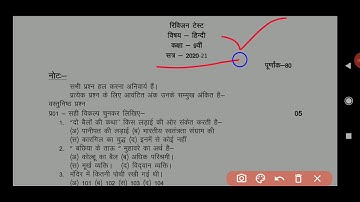 रिविजन टेस्ट
विषय – हिन्दी
कक्षा – 9वीं
सत्र – 2020-21
पूर्णांक–80
नोटः–
सभी प्रश्न हल करना अनिवार्य हैं।
प्रत्येक प्रश्न के लिए आवंटित अंक उनके सम्मुख अंकित हैं–
वस्तुनिष्ठ प्रश्न
प्र01 – सही विकल्प चुनकर लिखिए– 05
1. "दो बैलों की कथा" किस लड़ाई की ओर संकेत करती है–
(अ) पानीपत की लड़ाई (ब) भारतीय स्वतंत्रता संग्राम की
(स) कारगिल का युद्ध (द) इनमें से कोई नहीं
2. " बछिया के ताऊ " मुहावरे का अर्थ है–
(अ) कोल्हू का बैल (ब) अधिक परिश्रमी।
(स) मूर्ख व्यक्ति। (द) विद्वान व्यक्ति।
3. मंदिर में कितनी पोथी रखी गई थी।
(अ) 101 (ब) 102 (स) 103 (द) 104